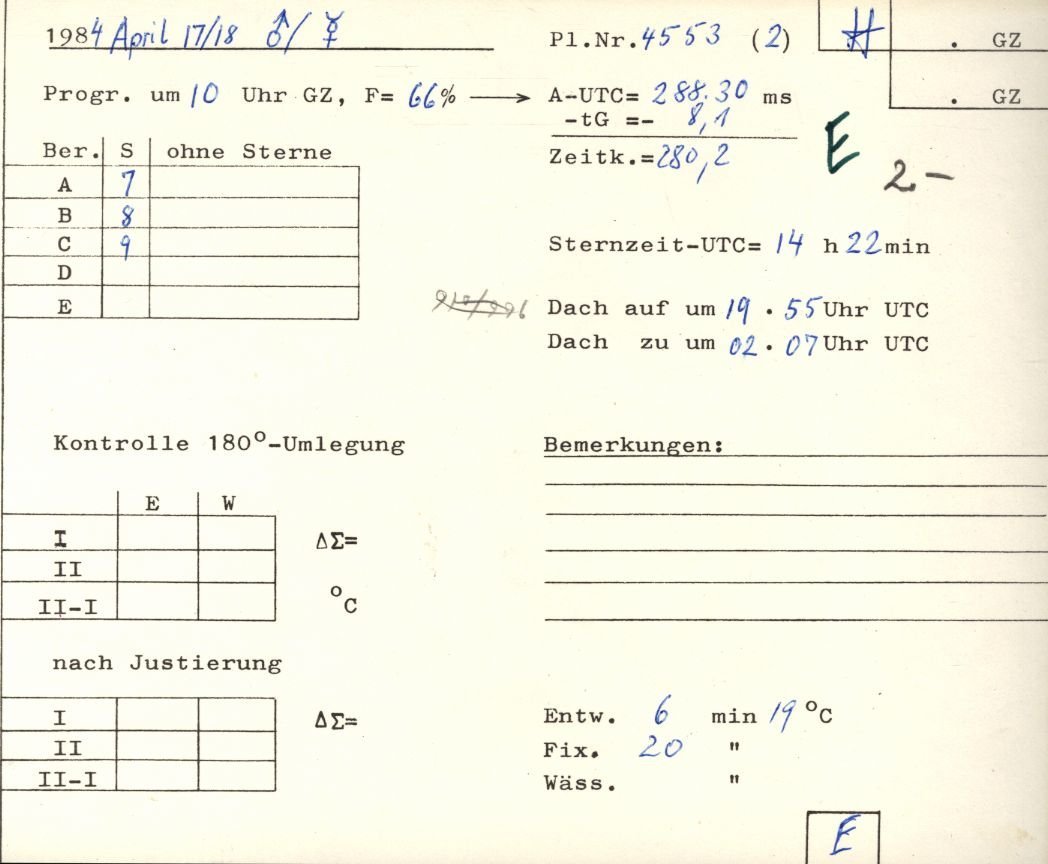 1984 April 17/18 ♂/☿ Pl.Nr. 4553 (2) H . GZ
Progr. um 10 Uhr GZ, F= 66% → A-UTC= 288.30 ms . GZ
-tG =- 8,1
Zeitk.=280,2 E 2-
Ber. S ohne Sterne
A 7
B 8
C 9
D
E
Sternzeit-UTC= 14 h 22 min
Dach auf um 19 . 55 Uhr UTC
Dach zu um 02 . 07 Uhr UTC
Kontrolle 180°-Umlegung
E W
I ΔΣ=
II
II-I °C
nach Justierung
I ΔΣ=
II
II-I
Bemerkungen:
Entw. 6 min 19 °C
Fix. 20 "
Wäss. "
E